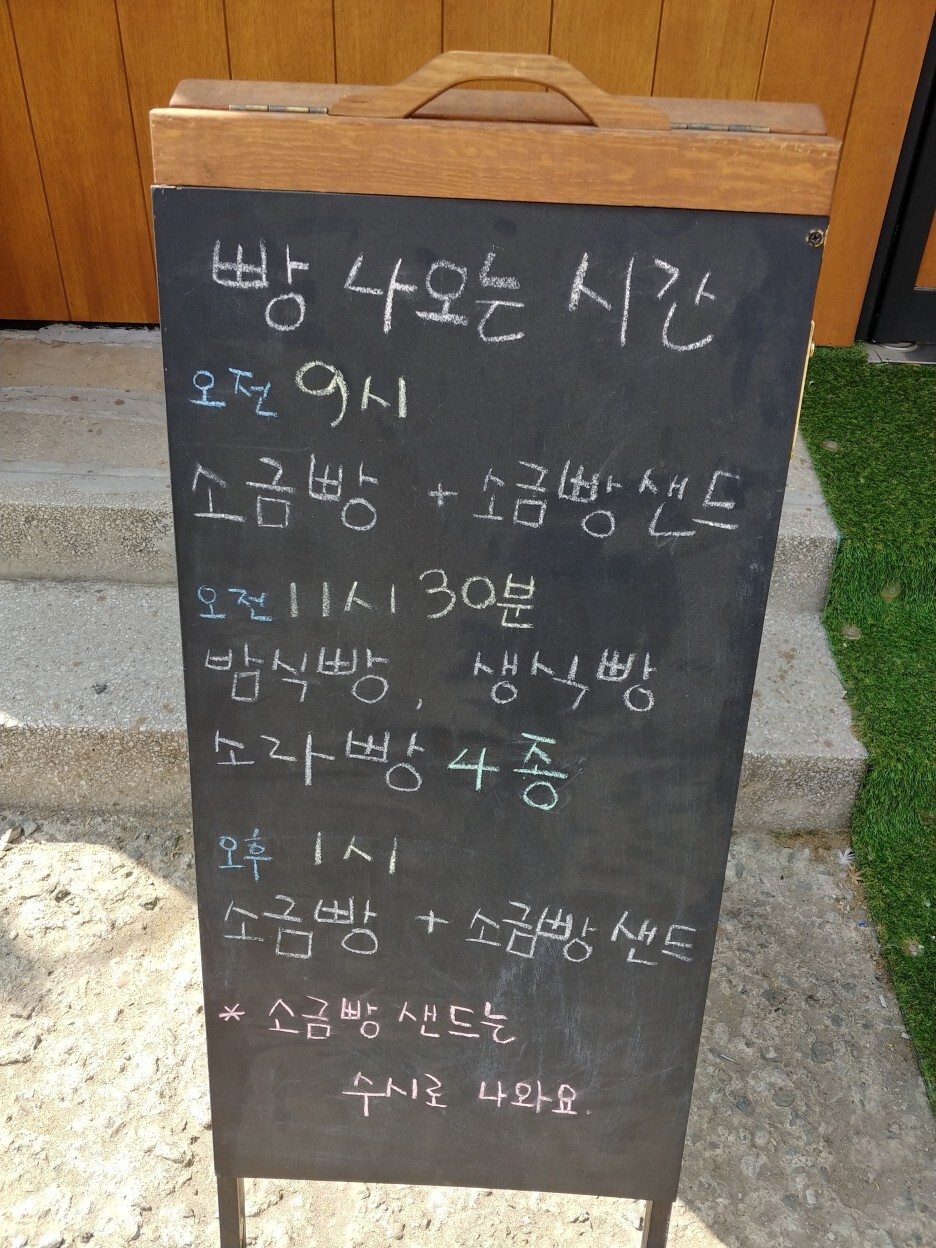 빵 나오는 시간
오전 9시
소금빵 + 소금빵 샌드
오전 11시 30분
밤식빵, 생식빵
소라빵 4종
오후 1시
소금빵 + 소금빵 샌드
* 소금빵 샌드는
수시로 나와요.